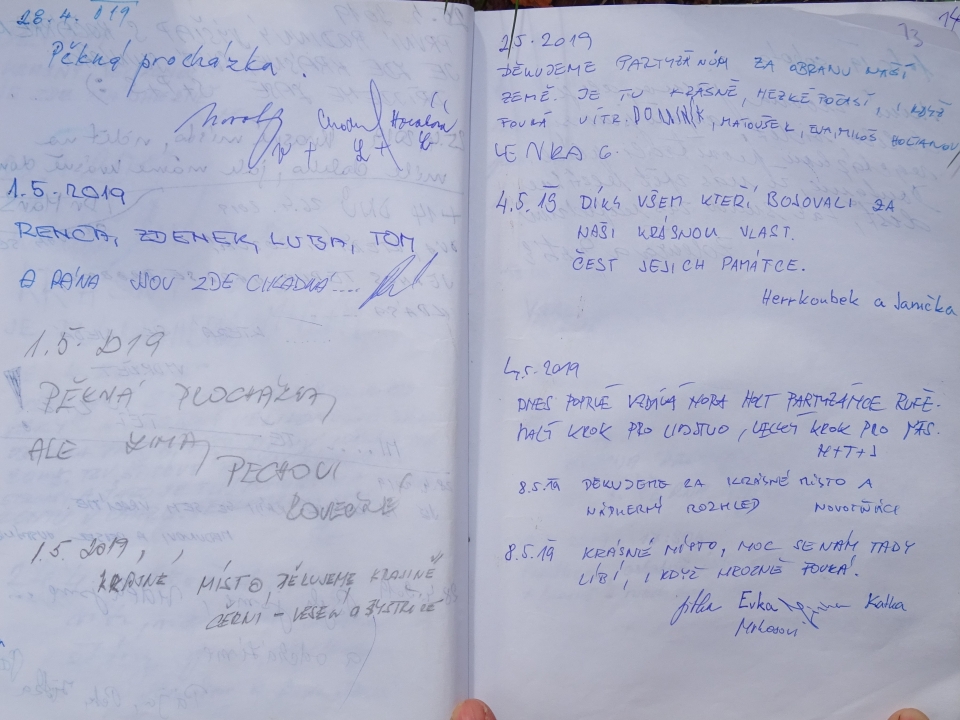 28.4. 2019
Pěkná procházka.
1.5. 2019
RENČA, ZDENEK, LUBA, TOM
A PÁNA NOV ZDE CHLADNÁ....
1.5. 2019
PĚKNÁ PROCHÁZKA,
ALE ZIMA,
PECHOVI
1.5 2019,
KRÁSNÉ MÍSTO, DĚKUJEME KRAJINĚ
ČERNÍ -
13
14
2.5.2019
DĚKUJEME PARTYZÁNŮM ZA OBRANU NAŠÍ
ZEMĚ. JE TU KRÁSNĚ, HEZKÉ POČASÍ, I KDYŽ
FOUKÁ VÍTR. DOMINIK, MATOUŠEK, EVA, MILOŠ
LENKA G.
4.5.19 DÍKY VŠEM KTEŘÍ BOJOVALI ZA
NAŠI KRÁSNOU VLAST.
ČEST JEJICH PAMÁTCE.
Herrkoubek a Janička
4.5.2019
DNES POPRVÉ VZDÁVÁ HORA HOLT PARTYZÁNCE RUFĚ.
MALÝ KROK PRO LIDSTVO, VELKÝ KROK PRO NÁS.
M+T+J
8.5.19 DĚKUJEME ZA KRÁSNÉ MÍSTO A
NÁDHERNÝ ROZHLED
8.5.19 KRÁSNÉ MÍSTO, MOC SE NÁM TADY
LÍBÍ, I KDYŽ MRAZNĚ FOUKÁ.
Jitka Evka Katka